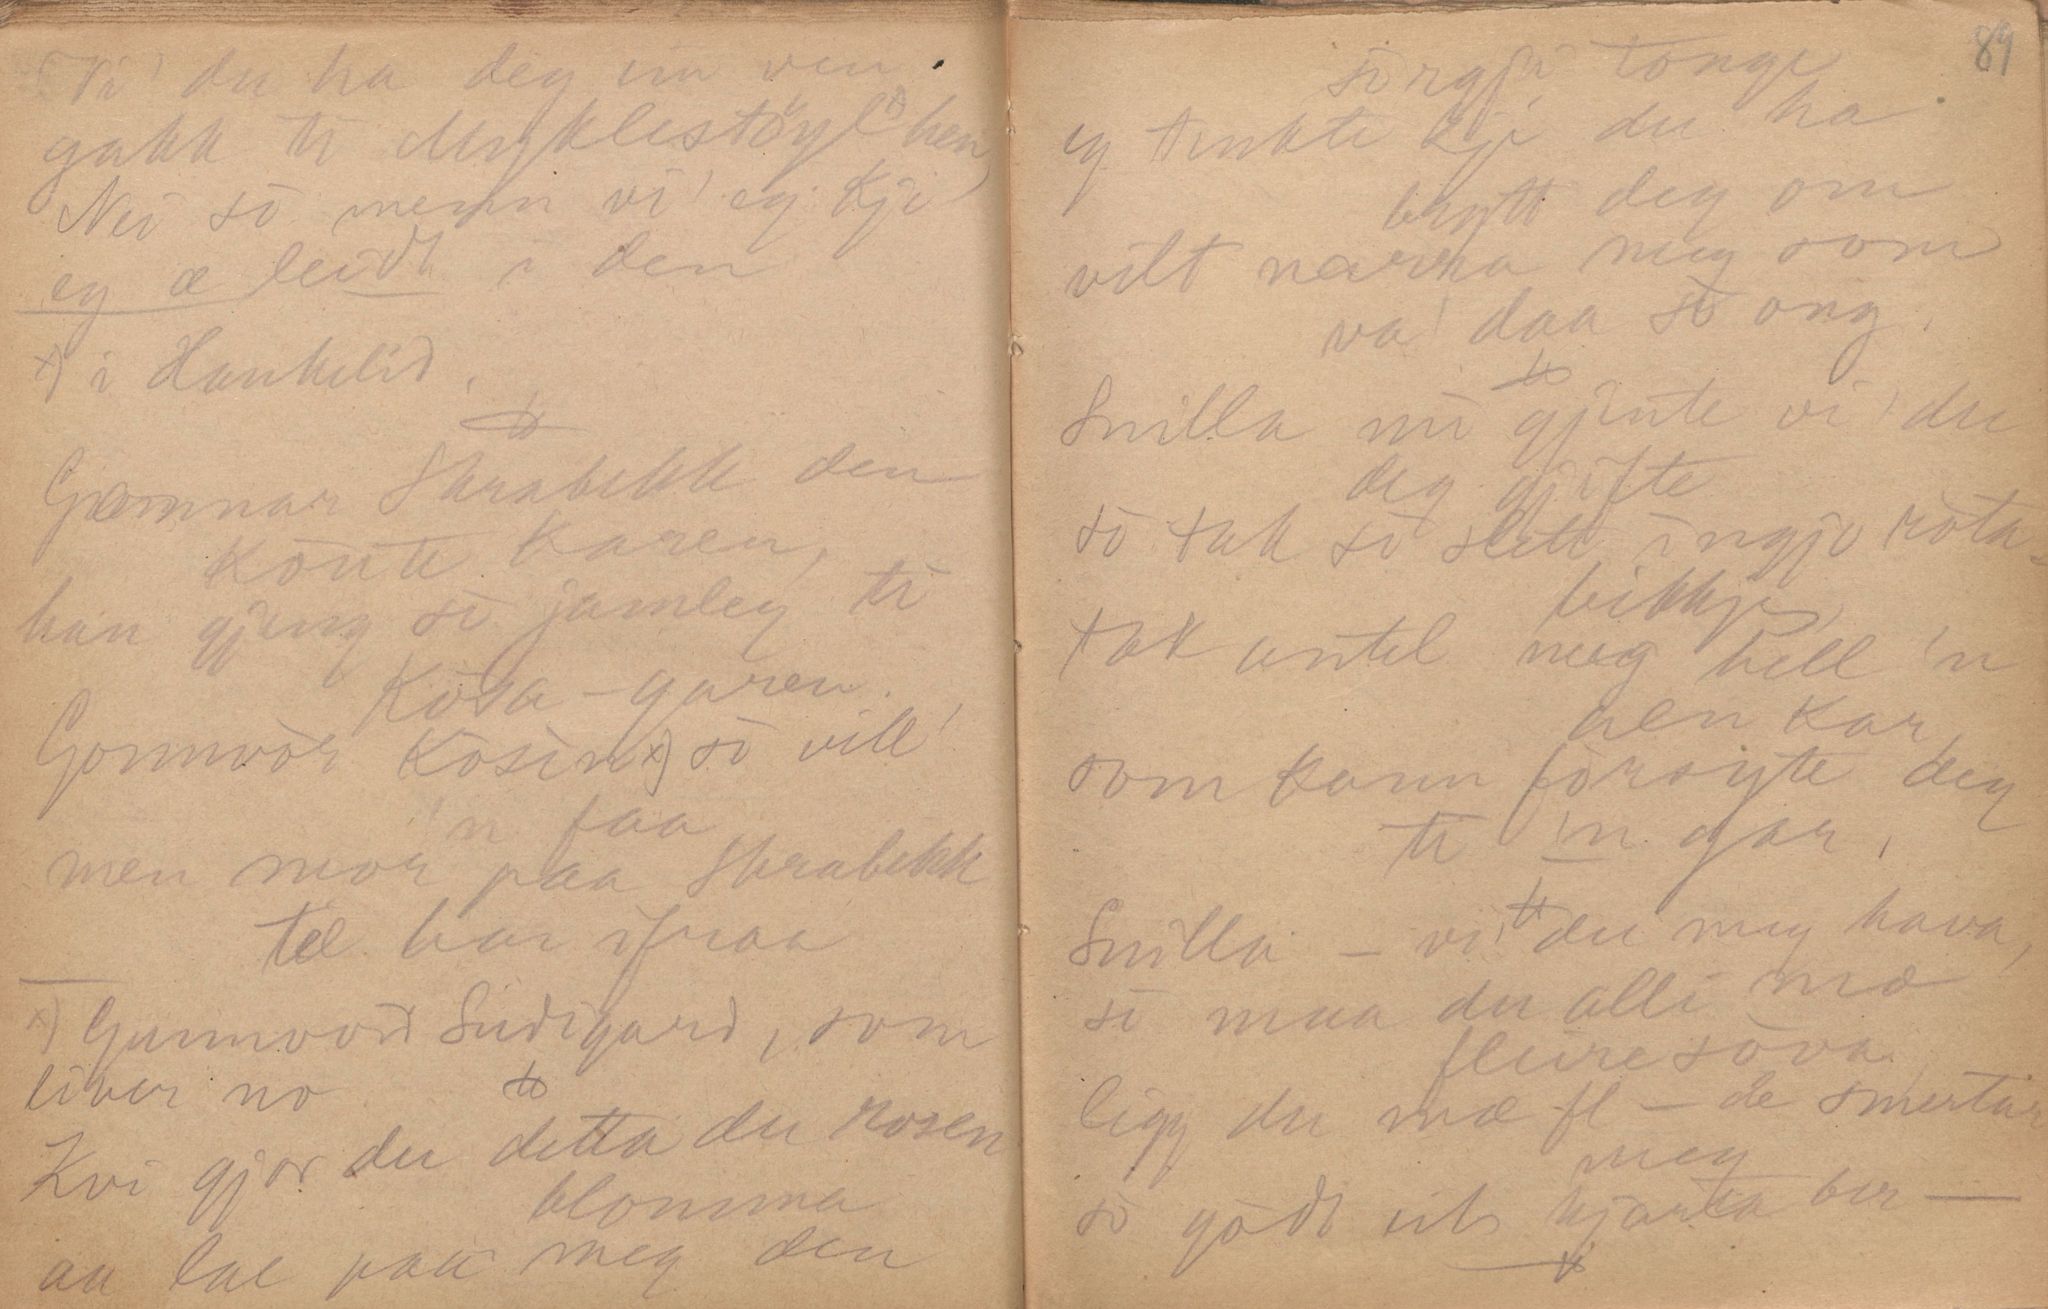 Vi' du ha deg ein ven
gakk ti Myklestöyl x) hen
Nei so menn vi' eg kji
eg æ leidt i den
x) i Haukelid.
Gunnar Skrabekk den
könte karen,
han gjeng so jamleg ti
Kosa-garen.
Gonnvor Kosin x) so vill'
'n faa
men mor paa Skrabekk
tel bar ifraa
x) Gunnvor Sudigard, som
liver no
Kvi gjor du detta du rosen
blomma
aa lae paa meg den
89
sorgji tonge
eg tenkte kji du ha
brytt deg om
vilt narra meg som
va' daa so ong.
Snilla mi gjente vi' du
deg gjifte
so tak so slett ingjo rota-
bikkje,
tak untel meg hell 'n
aen kar
som kann forsyte deg
ti 'n gar.
Snilla – vi' du meg hava,
so maa du alli mæ
fleire sova
ligg du mæ fl – de smertar
meg
so godt eit hjarta ber —